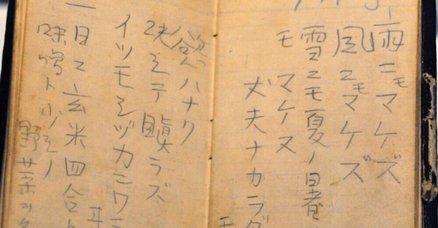 雨ニモマケズ
風ニモマケズ
雪ニモ夏ノ暑
モ マケヌ
丈夫ナカラダ
慾ハナク
決シテ瞋ラズ
イツモシヅカニワラ
一日ニ玄米四合ト
味噌ト少シノ
野菜ヲ